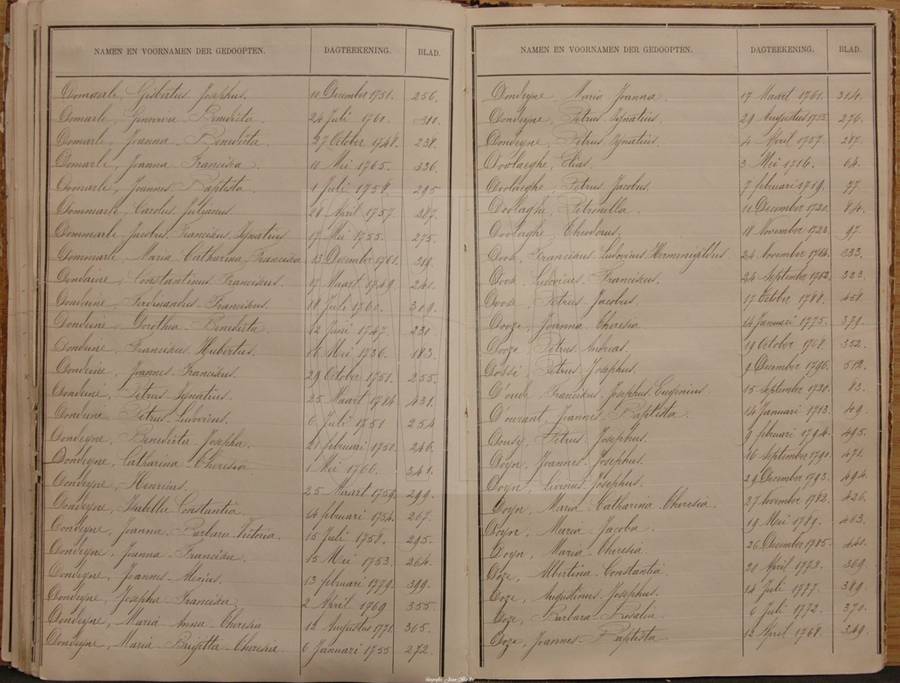 NAMEN EN VOORNAMEN DER GEDOOPTEN. DAGTEEKENING. BLAD.
Dommarle, Gisbertus Josephus. 10 December 1751. 256.
Domarle, Benedicta 24 Juli 1760. 310.
Domarle, Joanna Benedicta 27 October 1748. 238.
Domarle, Joanna Francisca 11 Mei 1765. 336.
Domarle, Joannes Baptista 1 Juli 1758. 295
Dommarle Carolus Julianus 28 April 1757. 287.
Dommarle Jacobus Franciscus Ignatius 17 Mei 1755. 275.
Dommarle Maria Catharina Francisca 13 December 1761. 319.
Dondaine, Constantinus Franciscus. 17 Maart 1749. 241.
Dondeine, Ferdinandus Franciscus. 18 Juli 1760. 309.
Dondeine, Dorothea Benedicta. 12 Juni 1747. 231.
Dondeine, Franciscus Hubertus. 16 Mei 1736. 183.
Dondeine, Joannes Franciscus. 29 October 1751. 255.
Dondeine, Petrus Ignatius. 25 Maart 1784. 431.
Dondeine, Petrus Ludovicus. 6 Juli 1751 254
Dondeyne, Benedicta Josepha. 21 februari 1750. 246.
Dondeyne, Catharina Theresia 1 Mei 1766. 341.
Dondeyne, Henricus. 25 Maart 1759. 299.
Dondeyne, Isabella Constantia. 14 februari 1754. 267.
Dondeyne, Joanna Barbara Victoria. 15 Juli 1758. 295.
Dondeyne, Joanna Francisca. 15 Mei 1753. 264.
Dondeyne, Joannes Alexius. 13 februari 1779. 399.
Dondeyne, Josepha Francisca. 2 April 1769 355.
Dondeyne, Maria Anna Theresia 12 Augustus 1771. 365.
Dondeyne, Maria Brigitta Theresia. 6 Januari 1755 272.
NAMEN EN VOORNAMEN DER GEDOOPTEN. DAGTEEKENING. BLAD.
Dondeyne Maria Joanna. 17 Maart 1761. 314.
Dondeyne, Petrus Ignatius. 29 Augustus 1755. 276.
Dondeyne, Petrus Ignatius. 4 April 1757. 287.
Doolaeghe, Elias. 3 Mei 1716. 64.
Doolaeghe, Petrus Jacobus. 7 februari 1719. 77.
Doolaghe, Petronella. 11 December 1720. 84.
Doolaghe Theodorus. 18 November 1723. 97.
Dook, Franciscus Ludovicus Hermenigildus. 24 November 1764. 333.
Dook, Ludovicus Franciscus. 24 September 1762. 323.
Doox, Petrus Jacobus. 17 October 1788. 458.
Dooze, Joanna Theresia 14 Januari 1775. 379.
Dooze Petrus Andreas. 19 October 1768. 352.
Dossi Petrus Josephus. 9 December 1796. 512.
Franciscus Josephus Eugenius. 15 September 1720. 83.
D'ourant, Joannes Baptista. 14 Januari 1713. 49.
Dousy, Petrus Josephus. 9 februari 1794. 495.
Doyn, Joannes Josephus. 16 September 1790. 471.
Doyn, Livinus Josephus. 29 December 1793. 494.
Doyn, Maria Catharina Theresia. 27 November 1783. 426.
Doyn, Maria Jacoba. 19 Mei 1789. 463.
Doyn, Maria Theresia. 26 December 1785. 441.
Doze, Albertina Constantia. 21 April 1772. 369.
Doze, Augustinus Josephus. 14 Juli 1777. 389.
Doze, Barbara Rosalia. 6 Juli 1772. 370.
Doze, Joannes Baptista 12 April 1768. 349.